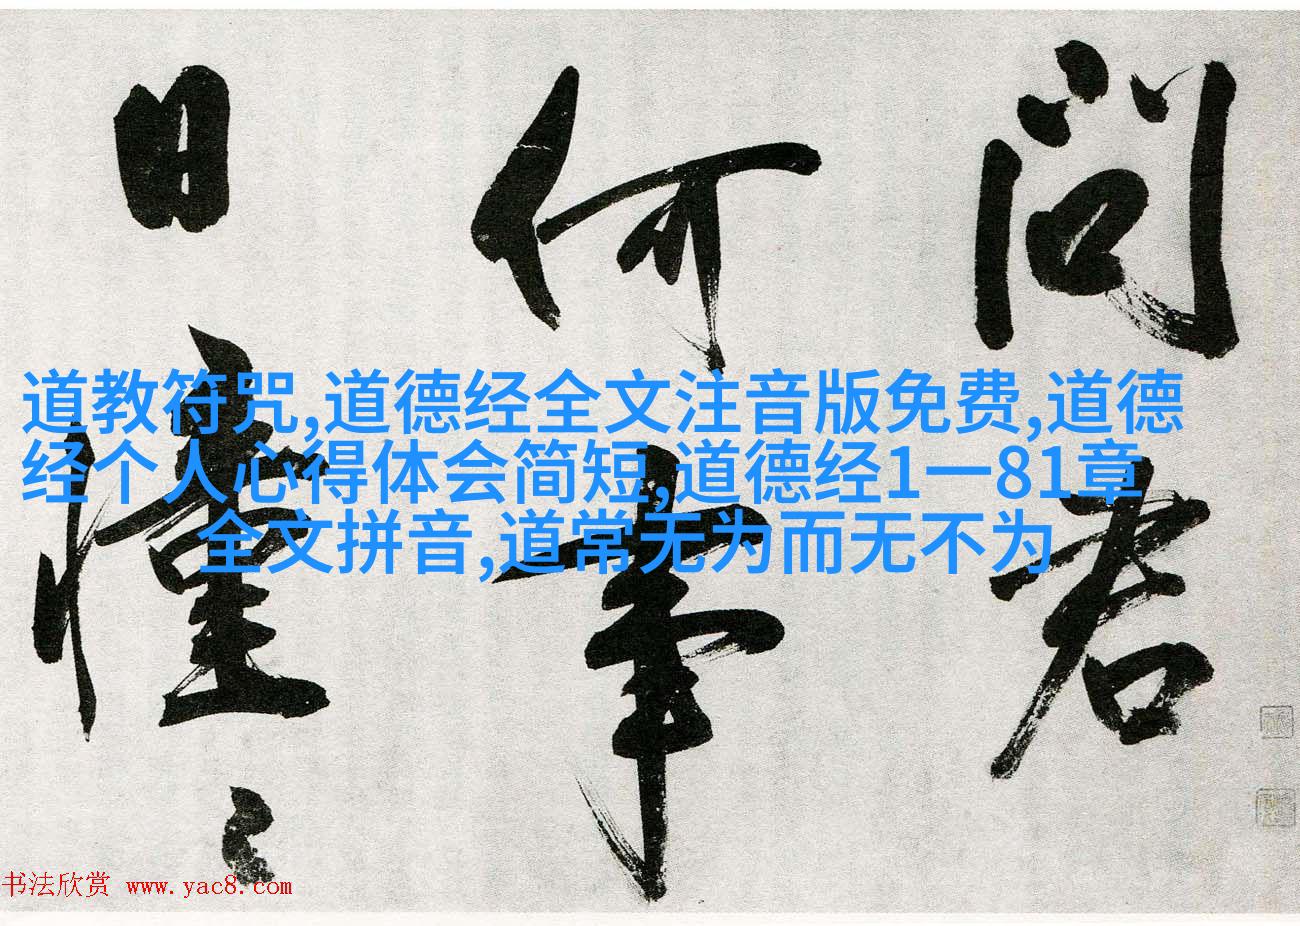 问君
何事
日憧〻
道教符咒,道德经全文注音版免费,道德
经个人心得体会简短,道德经1一81章
全文拼音,道常无为而无不为
书法欣赏 www.yac8.com